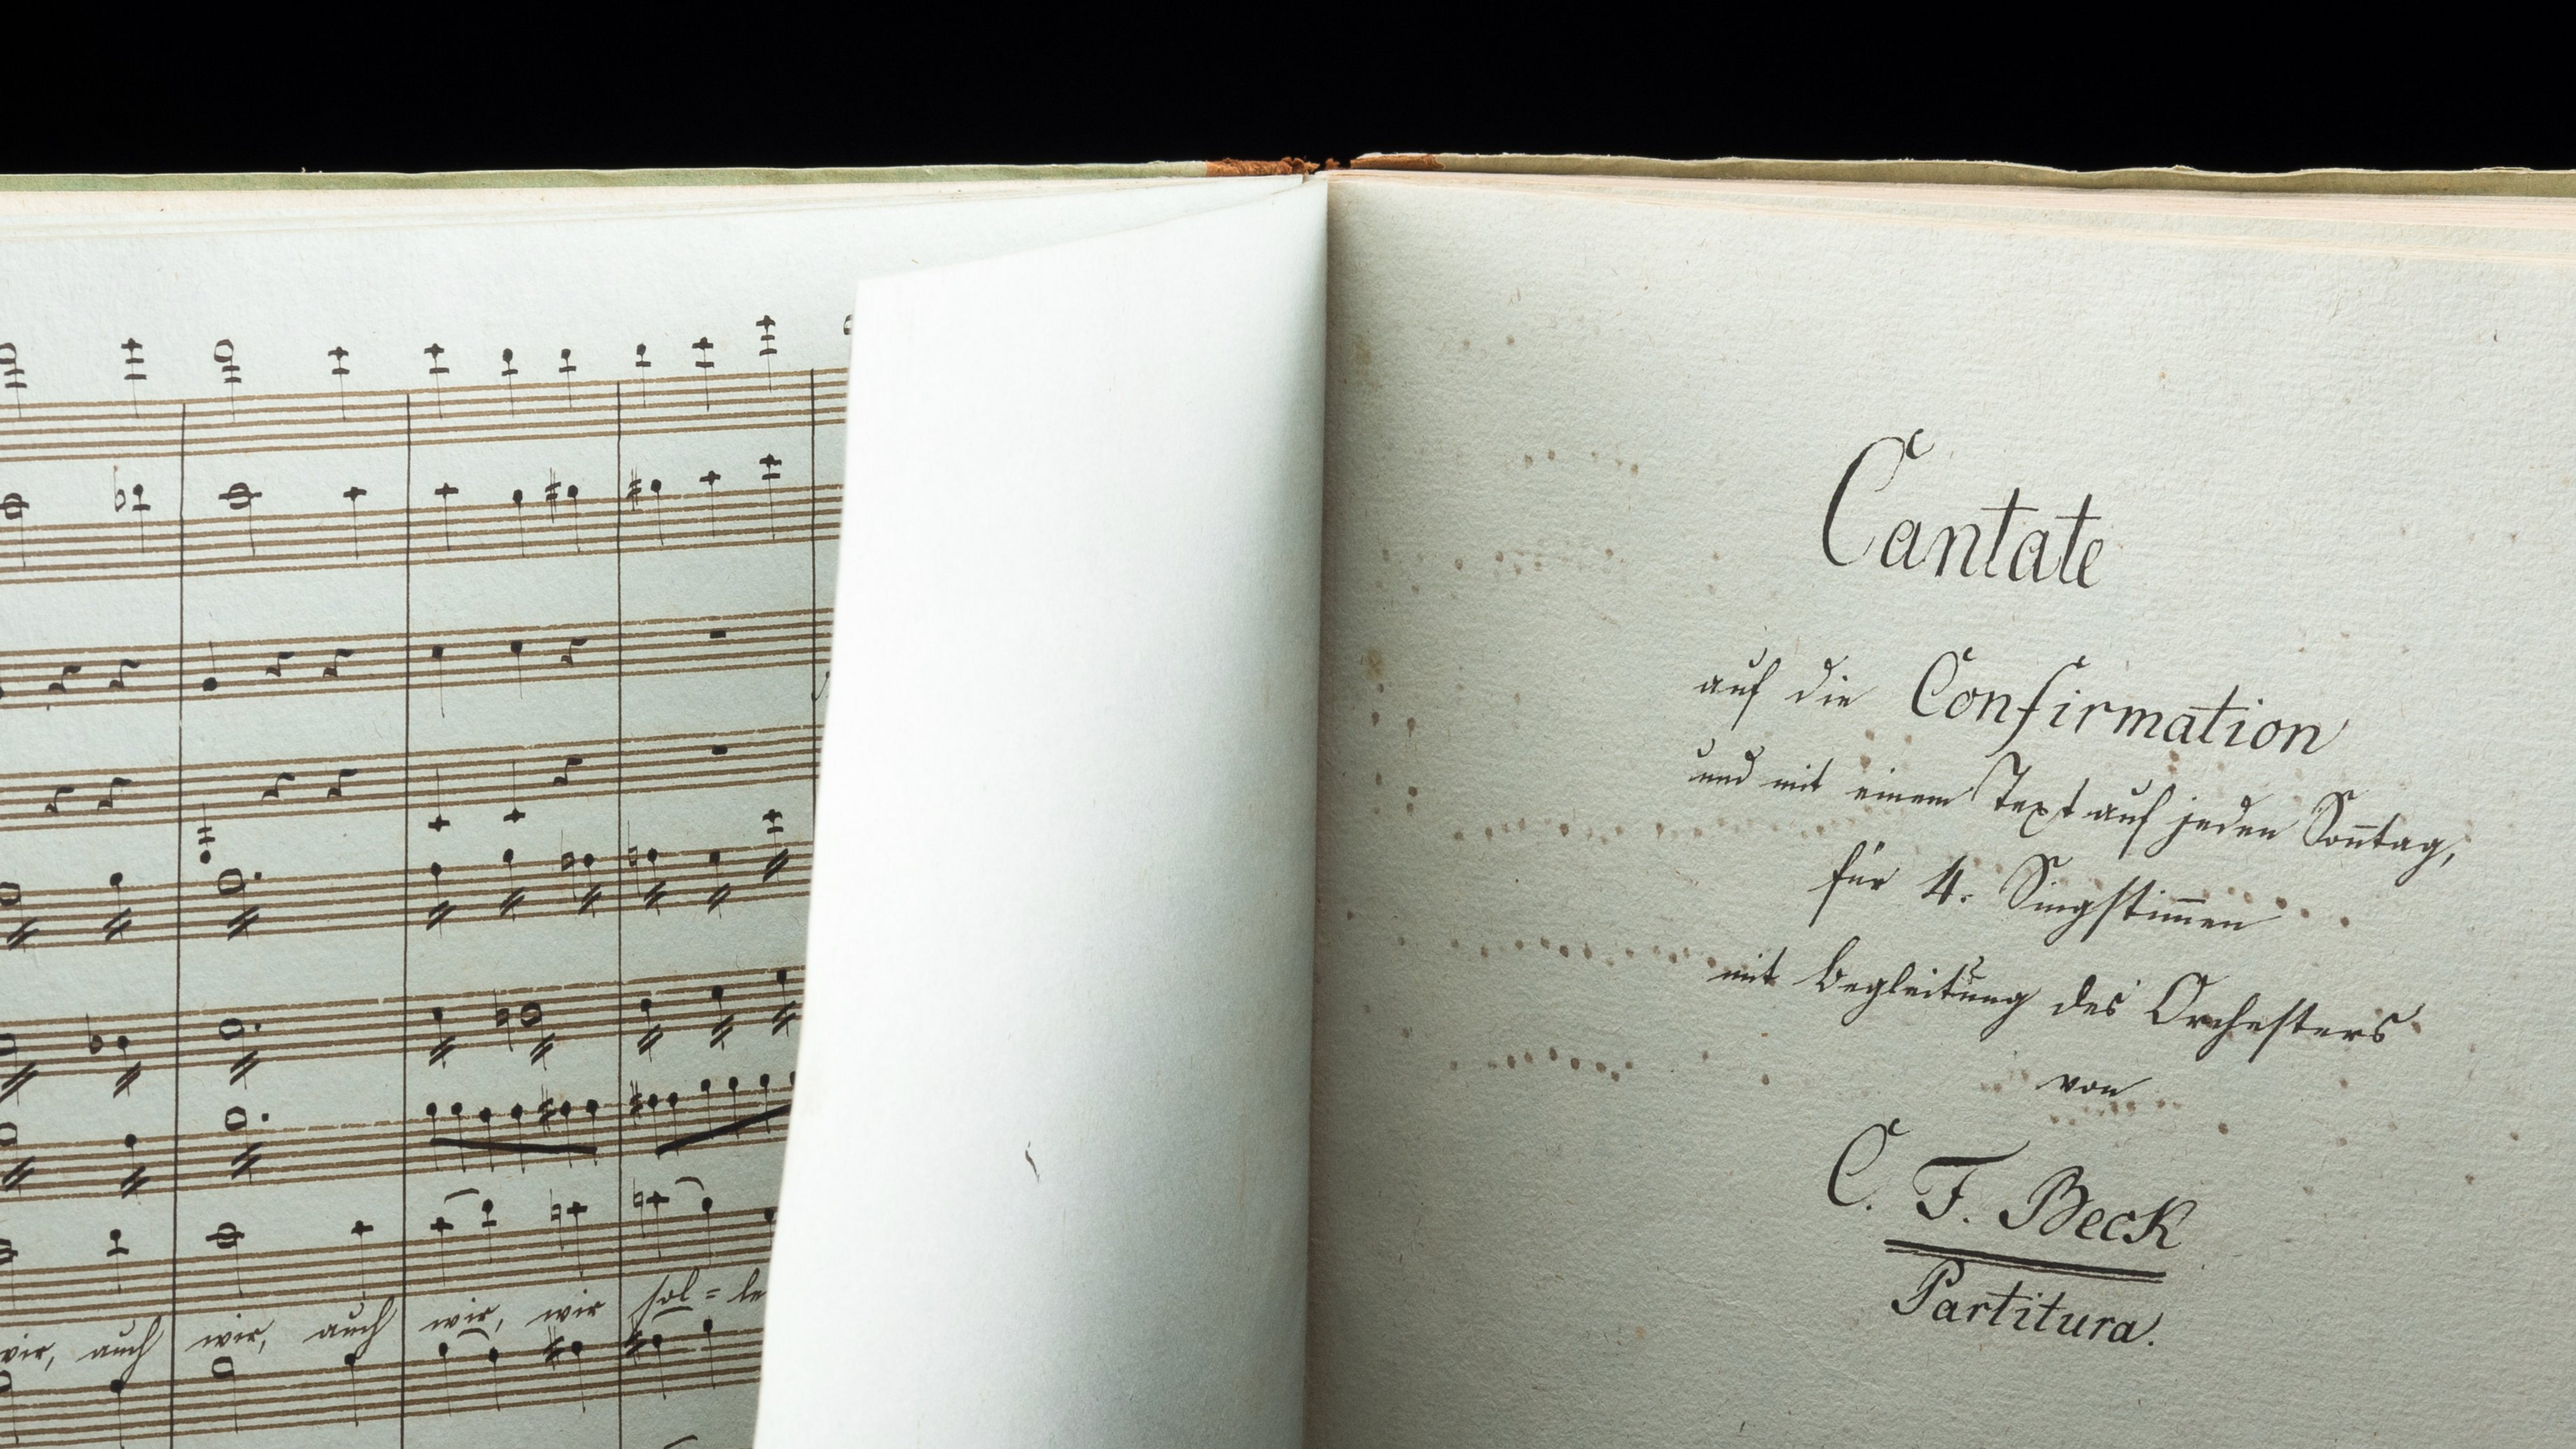 wir, auch wir, auch wir, wir sol=le
Cantate
auf die Confirmation
und mit einem Text auf jeden Soñtag,
für 4. Singstim̅en
mit Begleitung des Orchesters
von
C. F. Beck
Partitura.